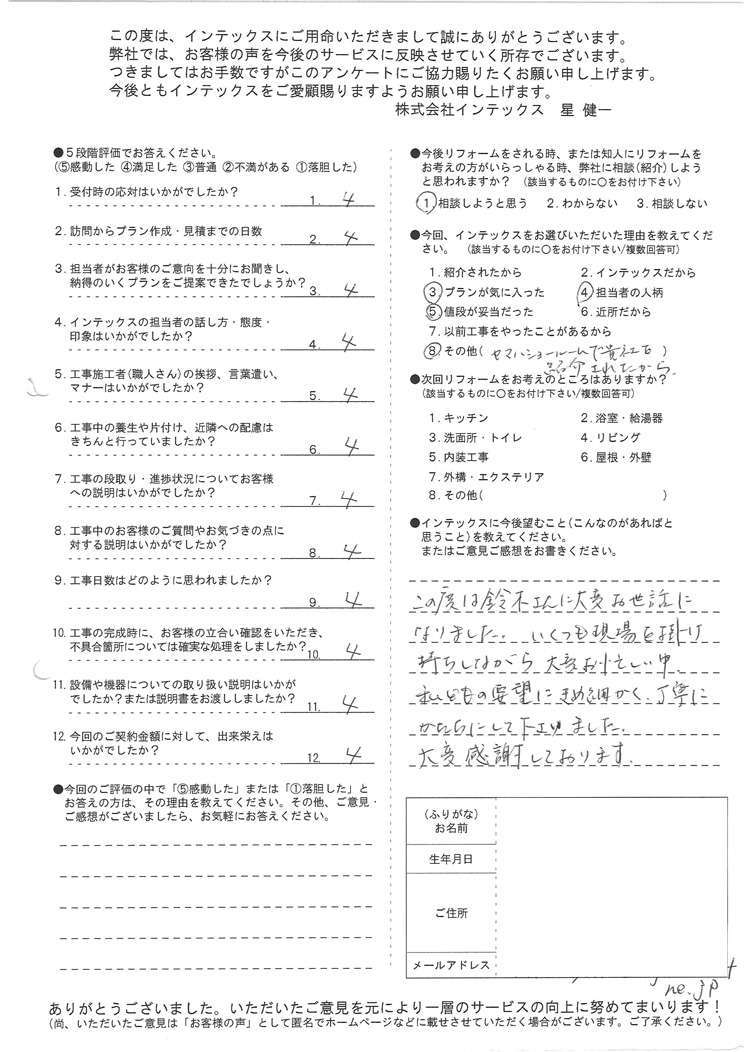 この度は、インテックスにご用命いただきまして誠にありがとうございます。
弊社では、お客様の声を今後のサービスに反映させていく所存でございます。
つきましてはお手数ですがこのアンケートにご協力賜りたくお願い申し上げます。
今後ともインテックスをご愛顧賜りますようお願い申し上げます。
株式会社インテックス 星 健一
●5段階評価でお答えください。
(⑤感動した ④満足した ③普通 ②不満がある ①落胆した)
1. 受付時の応対はいかがでしたか?
1. 4
2. 訪問からプラン作成・見積までの日数
2. 4
3. 担当者がお客様のご意向を十分にお聞きし、
納得のいくプランをご提案できたでしょうか?
3. 4
4. インテックスの担当者の話し方・態度・
印象はいかがでしたか?
4. 4
5. 工事施工者(職人さん)の挨拶、言葉遣い、
マナーはいかがでしたか?
5. 4
6. 工事中の養生や片付け、近隣への配慮は
きちんと行っていましたか?
6. 4
7. 工事の段取り・進捗状況についてお客様
への説明はいかがでしたか?
7. 4
8. 工事中のお客様のご質問やお気づきの点に
対する説明はいかがでしたか?
8. 4
9. 工事日数はどのように思われましたか?
9. 4
10. 工事の完成時に、お客様の立合い確認をいただき、
不具合箇所については確実な処理をしましたか?
10. 4
11. 設備や機器についての取り扱い説明はいかが
でしたか?または説明書をお渡ししましたか?
11. 4
12. 今回のご契約金額に対して、出来栄えは
いかがでしたか?
12. 4
●今回のご評価の中で「⑤感動した」または「①落胆した」と
お答えの方は、その理由を教えてください。その他、ご意見・
ご感想がございましたら、お気軽にお答えください。
●今後リフォームをされる時、または知人にリフォームを
お考えの方がいらっしゃる時、弊社に相談(紹介)しよう
と思われますか? (該当するものに○をお付け下さい)
① 相談しようと思う 2. わからない 3. 相談しない
●今回、インテックスをお選びいただいた理由を教えてくだ
さい。 (該当するものに○をお付け下さい/複数回答可)
1. 紹介されたから 2. インテックスだから
③ プランが気に入った ④ 担当者の人柄
⑤ 値段が妥当だった 6. 近所だから
7. 以前工事をやったことがあるから
⑧ その他( ショールームで貴社を
紹介されたから
●次回リフォームをお考えのところはありますか?
(該当するものに○をお付け下さい/複数回答可)
1. キッチン 2. 浴室・給湯器
3. 洗面所・トイレ 4. リビング
5. 内装工事 6. 屋根・外壁
7. 外構・エクステリア
8. その他( )
●インテックスに今後望むこと(こんなのがあればと
思うこと)を教えてください。
またはご意見ご感想をお書きください。
この度は鈴木さんに大変お世話に
なりました. いくつも現場を掛け
持ちしながら 大変お忙しい中.
私どもの要望にきめ細かく、丁寧に
かたちにして下さりました.
大変感謝しております.
(ふりがな)
お名前
生年月日
ご住所
メールアドレス
ne.jp
ありがとうございました。いただいたご意見を元により一層のサービスの向上に努めてまいります!
(尚、いただいたご意見は「お客様の声」として匿名でホームページなどに載せさせていただく場合がございます。ご了承ください。)